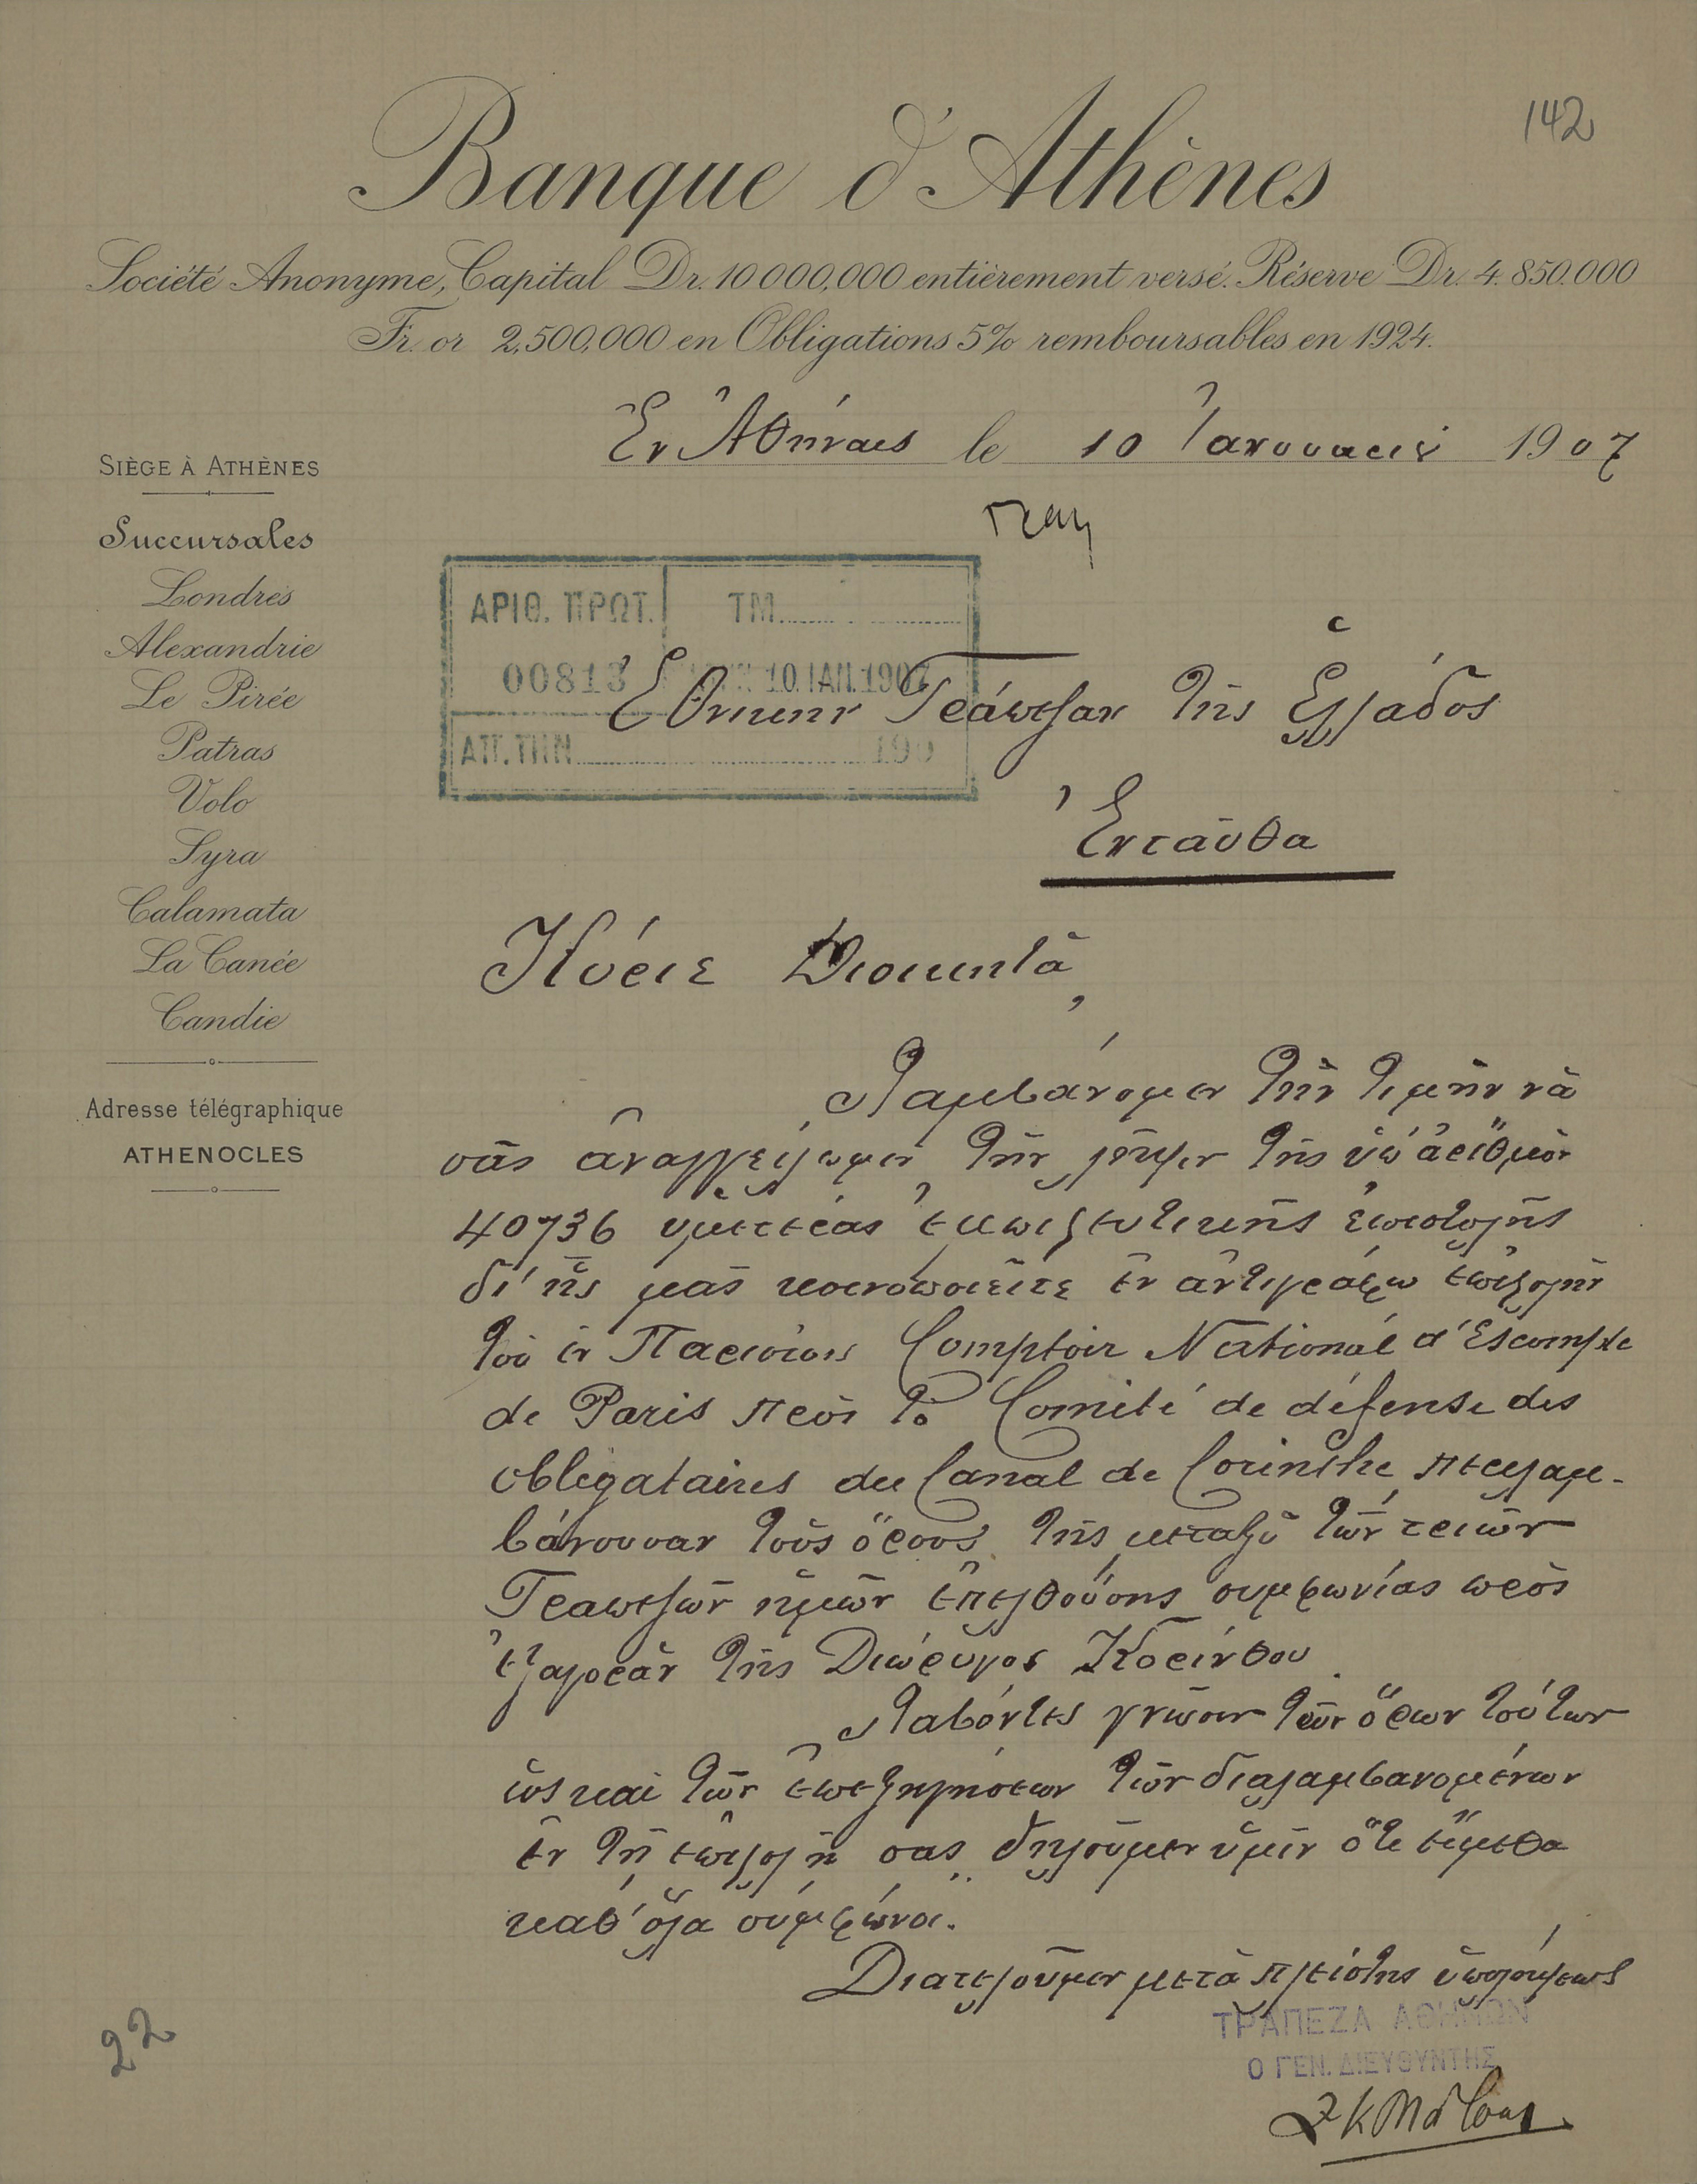 142
Banque d'Athènes
Société Anonyme, Capital Dr. 10000,000 entièrement versé. Réserve Dr. 4.850.000
Fr. or 2,500,000 en Obligations 5% remboursables en 1924.
Ἐν Ἀθήναις le 10 Ἰανουαρίου 1907
SIÈGE À ATHÈNES
Succursales
Londres
Alexandrie
Le Pirée
Patras
Volo
Syra
Calamata
La Canée
Candie
Adresse télégraphique
ATHENOCLES
ΑΡΙΘ. ΠΡΩΤ. ΤΜ
00813 10.ΙΑΝ.1907
ΑΠ.ΤΗΝ 190
Ἐθνικὴν Τράπεζαν τῆς Ἑλλάδος
Ἐνταῦθα
Κύριε Διοικητά,
Λαμβάνομεν τὴν τιμὴν νὰ
σᾶς ἀναγγείλωμεν τὴν λῆψιν τῆς ὑπ' ἀριθμὸν
40736 ὑμετέρας ἐμπιστευτικῆς ἐπιστολῆς
δι' ἧς μᾶς κοινοποιεῖτε ἐν ἀντιγράφῳ ἐπιστολὴν
τοῦ ἐν Παρισίοις Comptoir National d'Escompte
de Paris πρὸς τὸ Comité de défense des
obligataires du Canal de Corinthe περιλαμ-
βάνουσαν τοὺς ὅρους τῆς μεταξὺ τῶν τριῶν
Τραπεζῶν ἡμῶν ἐπελθούσης συμφωνίας πρὸς
ἐξαγορὰν τῆς Διώρυγος Κορίνθου.
Λαβόντες γνῶσιν τῶν ὅρων τούτων
ὡς καὶ τῶν ἐπεξηγήσεων τῶν διαλαμβανομένων
ἐν τῇ ἐπιστολῇ σας, δηλοῦμεν ὑμῖν ὅτι εἴμεθα
καθ' ὅλα σύμφωνοι.
Διατελοῦμεν μετὰ πλείστης ὑπολήψεως
ΤΡΑΠΕΖΑ ΑΘΗΝΩΝ
Ο ΓΕΝ. ΔΙΕΥΘΥΝΤΗΣ
22